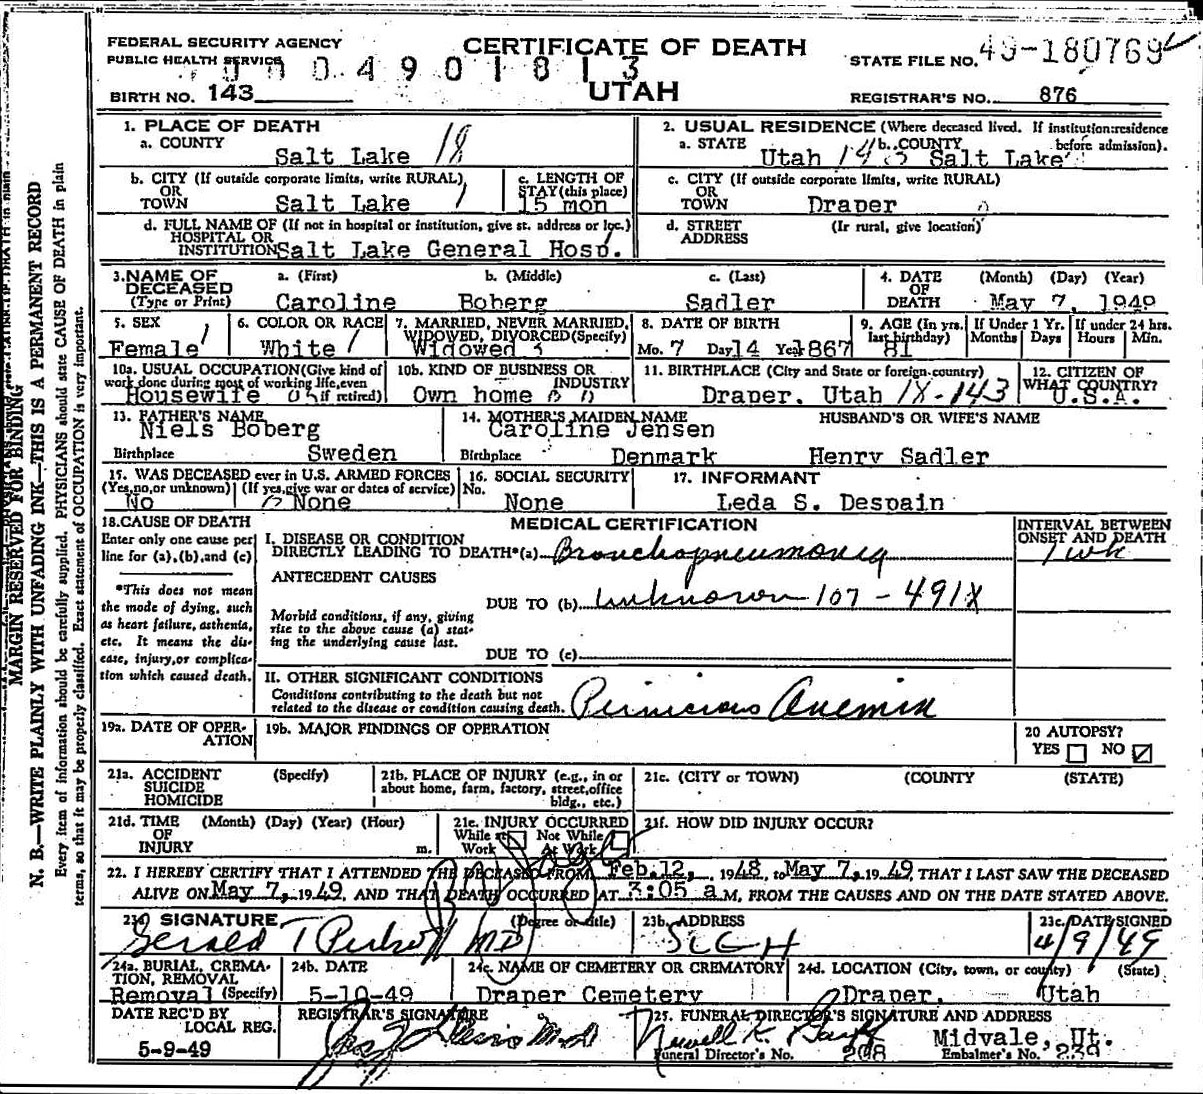 FEDERAL SECURITY AGENCY
PUBLIC HEALTH SERVICE
CERTIFICATE OF DEATH
STATE FILE NO. 49-180769
0004901813
BIRTH NO. 143
UTAH
REGISTRAR'S NO. 876
1. PLACE OF DEATH
a. COUNTY Salt Lake 18
2. USUAL RESIDENCE (Where deceased lived. If institution:residence before admission).
a. STATE Utah 143 b. COUNTY Salt Lake
b. CITY (If outside corporate limits, write RURAL)
OR
TOWN Salt Lake
c. LENGTH OF
STAY (this place)
15 mon
c. CITY (If outside corporate limits, write RURAL)
OR
TOWN Draper
d. FULL NAME OF (If not in hospital or institution, give st. address or loc.)
HOSPITAL OR
INSTITUTION Salt Lake General Hosp.
d. STREET (Ir rural, give location)
ADDRESS
3. NAME OF
DECEASED
(Type or Print)
a. (First) b. (Middle) c. (Last)
Caroline Boberg Sadler
4. DATE (Month) (Day) (Year)
OF
DEATH May 7, 1949
5. SEX
Female
6. COLOR OR RACE
White
7. MARRIED, NEVER MARRIED,
WIDOWED, DIVORCED (Specify)
Widowed 3
8. DATE OF BIRTH
Mo. 7 Day 14 Year 1867
9. AGE (In yrs.
last birthday)
81
If Under 1 Yr.
Months Days
If under 24 hrs.
Hours Min.
10a. USUAL OCCUPATION (Give kind of
work done during most of working life, even
if retired)
Housewife
10b. KIND OF BUSINESS OR
INDUSTRY
Own home
11. BIRTHPLACE (City and State or foreign country)
Draper, Utah 1X-143
12. CITIZEN OF
WHAT COUNTRY?
U.S.A.
13. FATHER'S NAME
Niels Boberg
Birthplace Sweden
14. MOTHER'S MAIDEN NAME
Caroline Jensen
Birthplace Denmark
HUSBAND'S OR WIFE'S NAME
Henry Sadler
15. WAS DECEASED ever in U.S. ARMED FORCES
(Yes, no, or unknown) (If yes, give war or dates of service)
No None
16. SOCIAL SECURITY
No.
None
17. INFORMANT
Leda S. Despain
18. CAUSE OF DEATH
Enter only one cause per
line for (a), (b), and (c)
*This does not mean
the mode of dying, such
as heart failure, asthenia,
etc. It means the dis-
ease, injury, or complica-
tion which caused death.
MEDICAL CERTIFICATION
INTERVAL BETWEEN
ONSET AND DEATH
I. DISEASE OR CONDITION
DIRECTLY LEADING TO DEATH*(a) Bronchopneumonia 1 wk
ANTECEDENT CAUSES
DUE TO (b) unknown 107 - 491X
Morbid conditions, if any, giving
rise to the above cause (a) stat-
ing the underlying cause last.
DUE TO (c)
II. OTHER SIGNIFICANT CONDITIONS
Conditions contributing to the death but not
related to the disease or condition causing death.
Pernicious Anemia
19a. DATE OF OPER-
ATION
19b. MAJOR FINDINGS OF OPERATION
20 AUTOPSY?
YES NO
21a. ACCIDENT (Specify)
SUICIDE
HOMICIDE
21b. PLACE OF INJURY (e.g., in or
about home, farm, factory, street, office
bldg., etc.)
21c. (CITY or TOWN) (COUNTY) (STATE)
21d. TIME (Month) (Day) (Year) (Hour)
OF
INJURY m.
21e. INJURY OCCURRED
While at Not While
Work At Work
21f. HOW DID INJURY OCCUR?
22. I HEREBY CERTIFY THAT I ATTENDED THE DECEASED FROM Feb.12, 1948, to May 7, 1949, THAT I LAST SAW THE DECEASED
ALIVE ON May 7, 1949, AND THAT DEATH OCCURRED AT 3:05 a M, FROM THE CAUSES AND ON THE DATE STATED ABOVE.
SIGNATURE (Degree or title)
Gerald T M.D
23b. ADDRESS
SLGH
23c. DATE SIGNED
4/9/49
24a. BURIAL, CREMA-
TION, REMOVAL
Removal (Specify)
24b. DATE
5-10-49
24c. NAME OF CEMETERY OR CREMATORY
Draper Cemetery
24d. LOCATION (City, town, or county) (State)
Draper, Utah
DATE REC'D BY
LOCAL REG.
5-9-49
REGISTRAR'S SIGNATURE
M.D
25. FUNERAL DIRECTOR'S SIGNATURE AND ADDRESS
Newell K. Midvale, Ut.
Funeral Director's No. 208 Embalmer's No. 239
MARGIN RESERVED FOR BINDING
N. B.—WRITE PLAINLY WITH UNFADING INK—THIS IS A PERMANENT RECORD
Every item of information should be carefully supplied. PHYSICIANS should state CAUSE OF DEATH in plain
terms, so that it may be properly classified. Exact statement of OCCUPATION is very important.